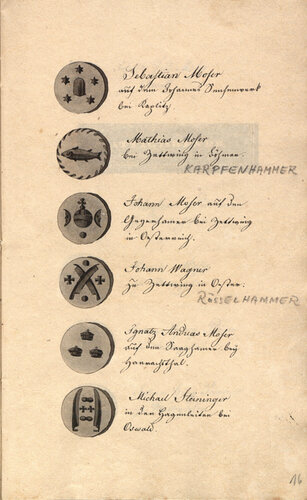 Sebastian Moser
auf dem Johannes Sensenwerk
bei Kaplitz
Mathias Moser
bei Zettwing in Böhmen.
KARPFENHAMMER
Johann Moser auf den
bei Zettwing
in Oesterreich.
Johann Wagner
zu Zettwing in Oester.
RÖSSELHAMMER
Ignatz Andreas Moser
auf dem bey
Harrachsthal.
Michael Steininger
in der Hagenleiten bei
Oswald.
16